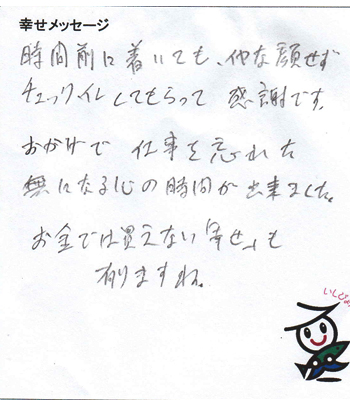 幸せメッセージ
時間前に着いても、イヤな顔せず
チェックインしてもらって 感謝です。
おかげで 仕事を忘れた
無になる心の時間が出来ました。
お金では買えない「幸せ」も
有りますね。